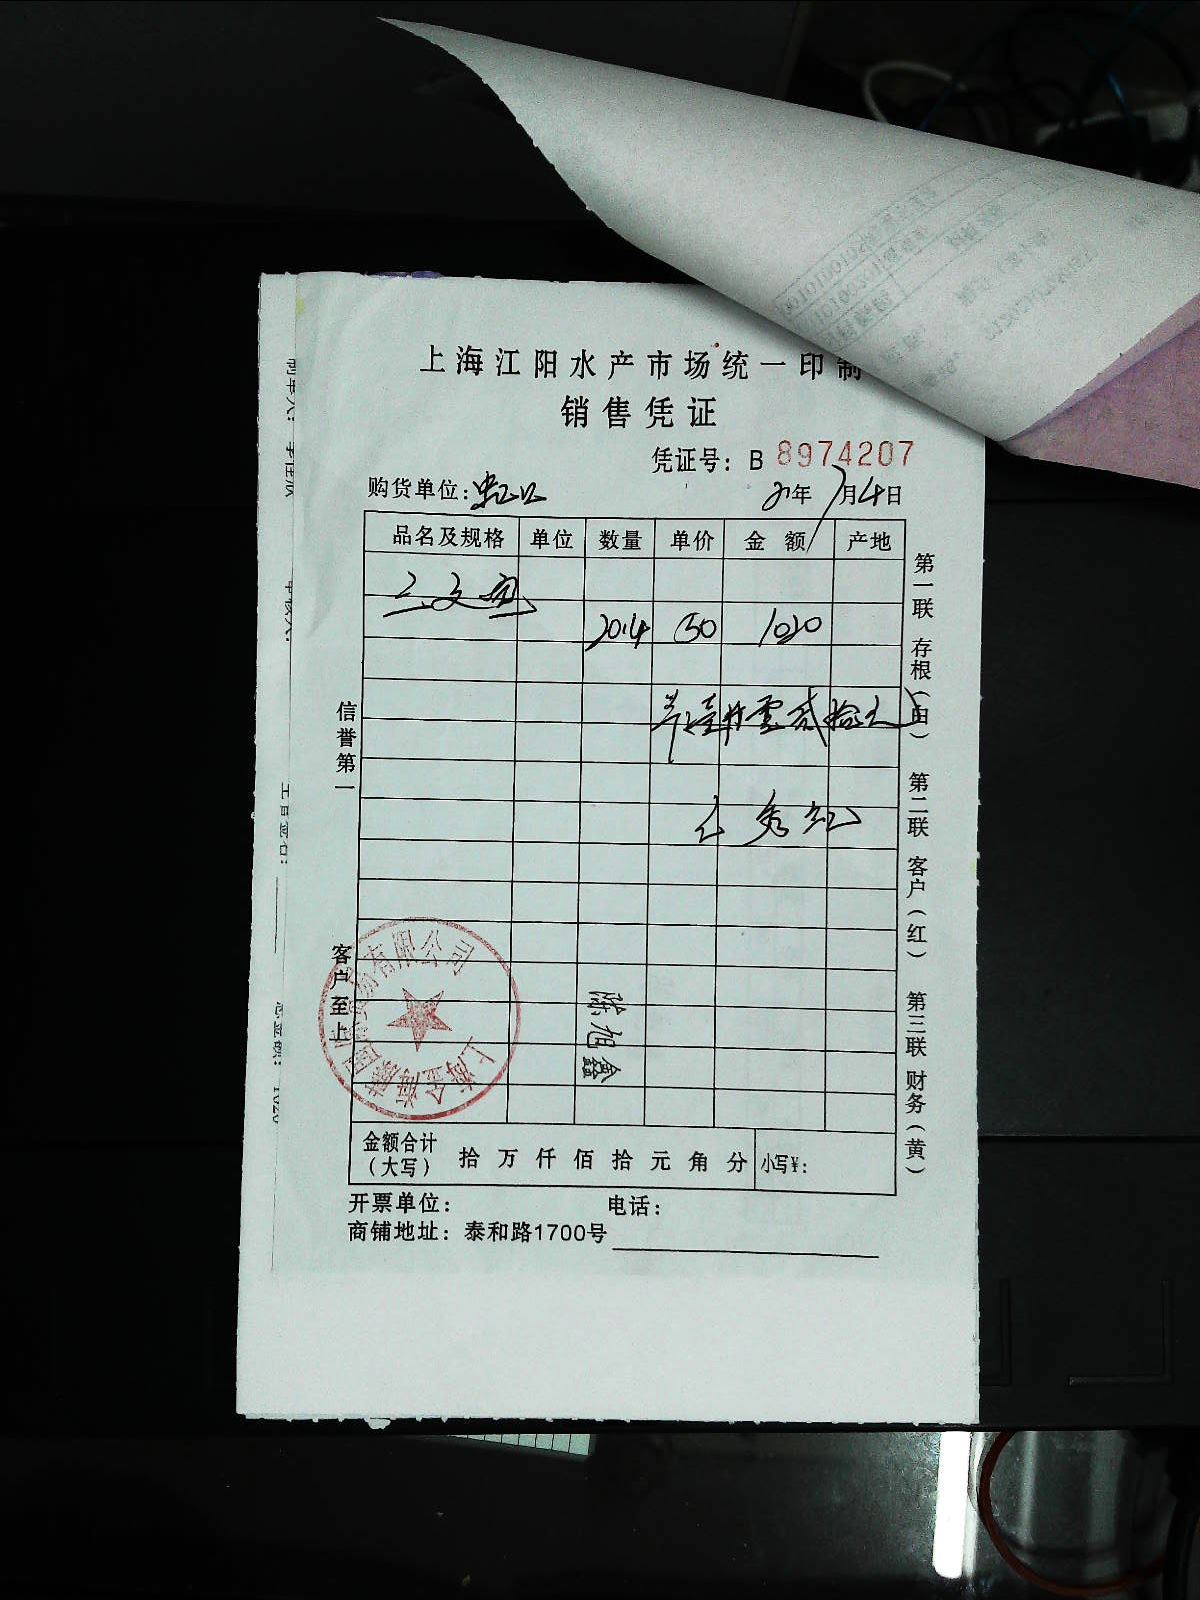 上海江阳水产市场统一印制
销售凭证
凭证号：B 8974207
购货单位：
21年7月4日
品名及规格 单位 数量 单价 金额 产地
三文鱼
20.4 50 1020
共壹仟零贰拾元
信誉第一
客户至上
第一联 存根（白） 第二联 客户（红） 第三联 财务（黄）
有限公司
上海金海
徐旭鑫
金额合计（大写） 拾 万 仟 佰 拾 元 角 分 小写¥：
开票单位： 电话：
商铺地址：泰和路1700号